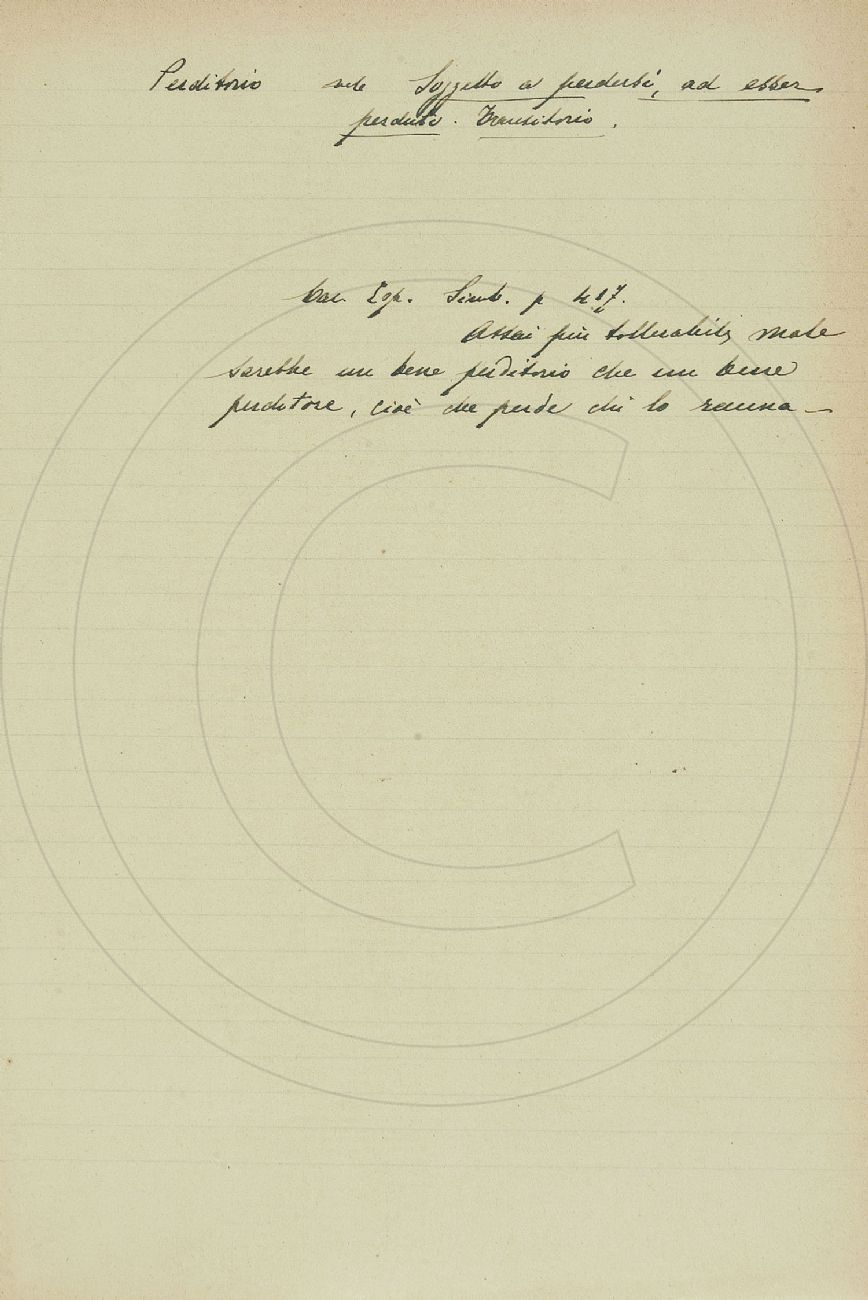 Perditorio vale Soggetto a perdersi, ad esser
perduto. Transitorio.
Cav. Esp. Simb. p 487.
Assai più tollerabile male
sarebbe un bene perditorio che un bene
perditore, cioè che perde chi lo rauna —